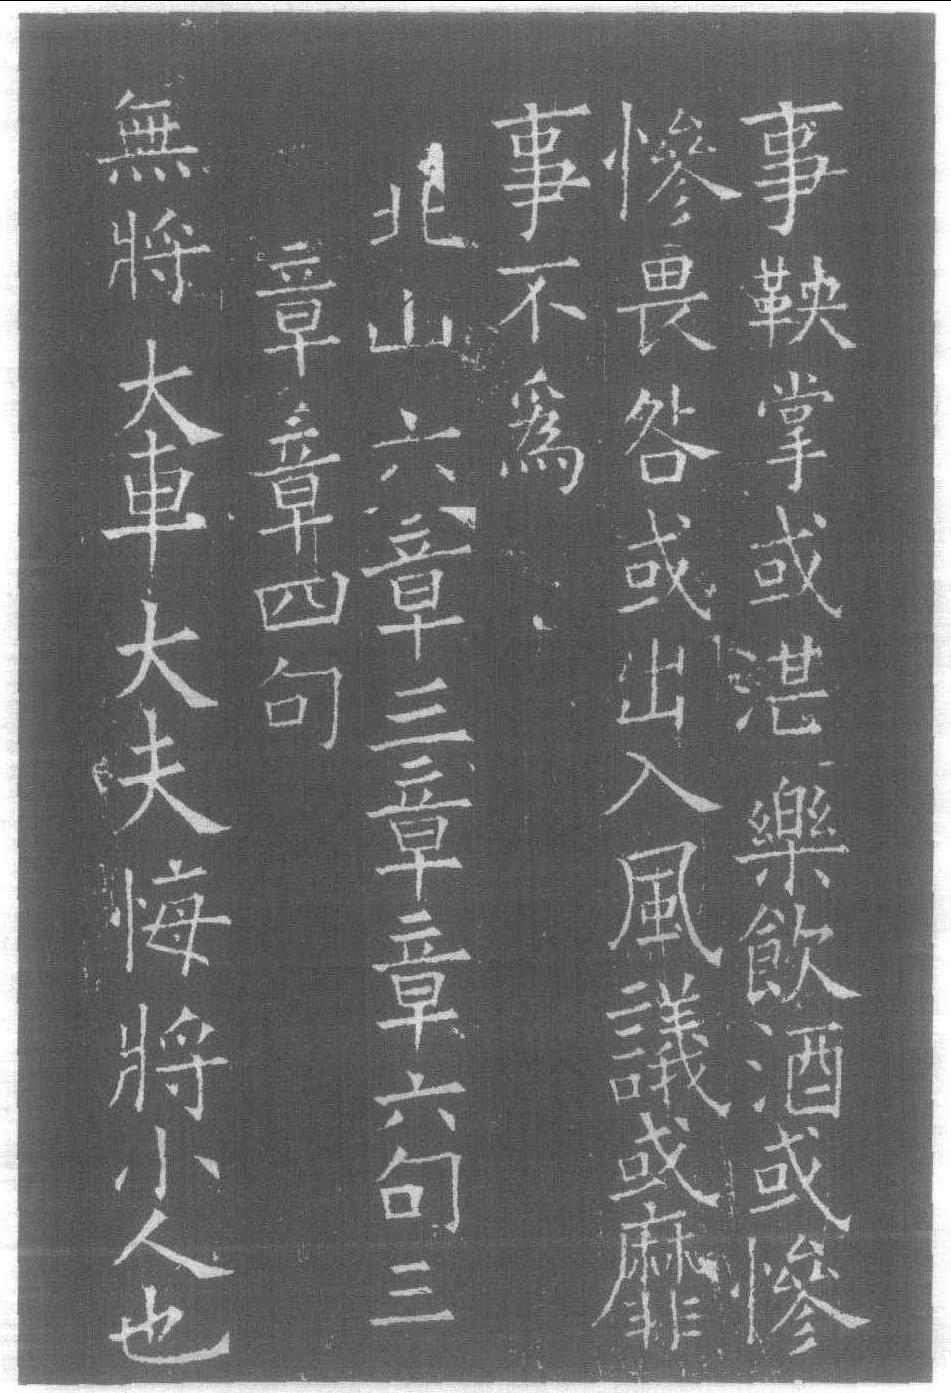 事鞅掌或湛樂飲酒或慘
慘畏咎或出入風議或靡
事不為
北山六章三章章六句三
章章四句
無將大車大夫悔將小人也